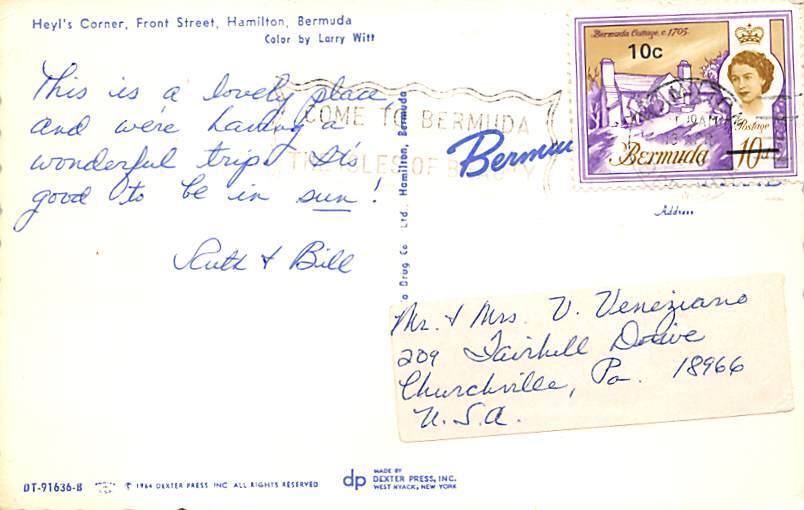 Heyl's Corner, Front Street, Hamilton, Bermuda
Color by Larry Witt
This is a lovely place,
and we're having a
wonderful trip. It's
good to be in sun!
Ruth & Bill
COME TO BERMUDA
THE ISLES OF BEAUTY
Bermuda Cottage, c.1705
10c
Postage
Bermuda
10d
AM
Drug Co Ltd. Hamilton, Bermuda
Address
Mr. & Mrs. V. Veneziano
209 Fairhill Drive
Churchville, Pa. 18966
U.S.A.
DT-91636-B
© 1964 DEXTER PRESS INC ALL RIGHTS RESERVED
dp
MADE BY
DEXTER PRESS, INC.
WEST NYACK, NEW YORK